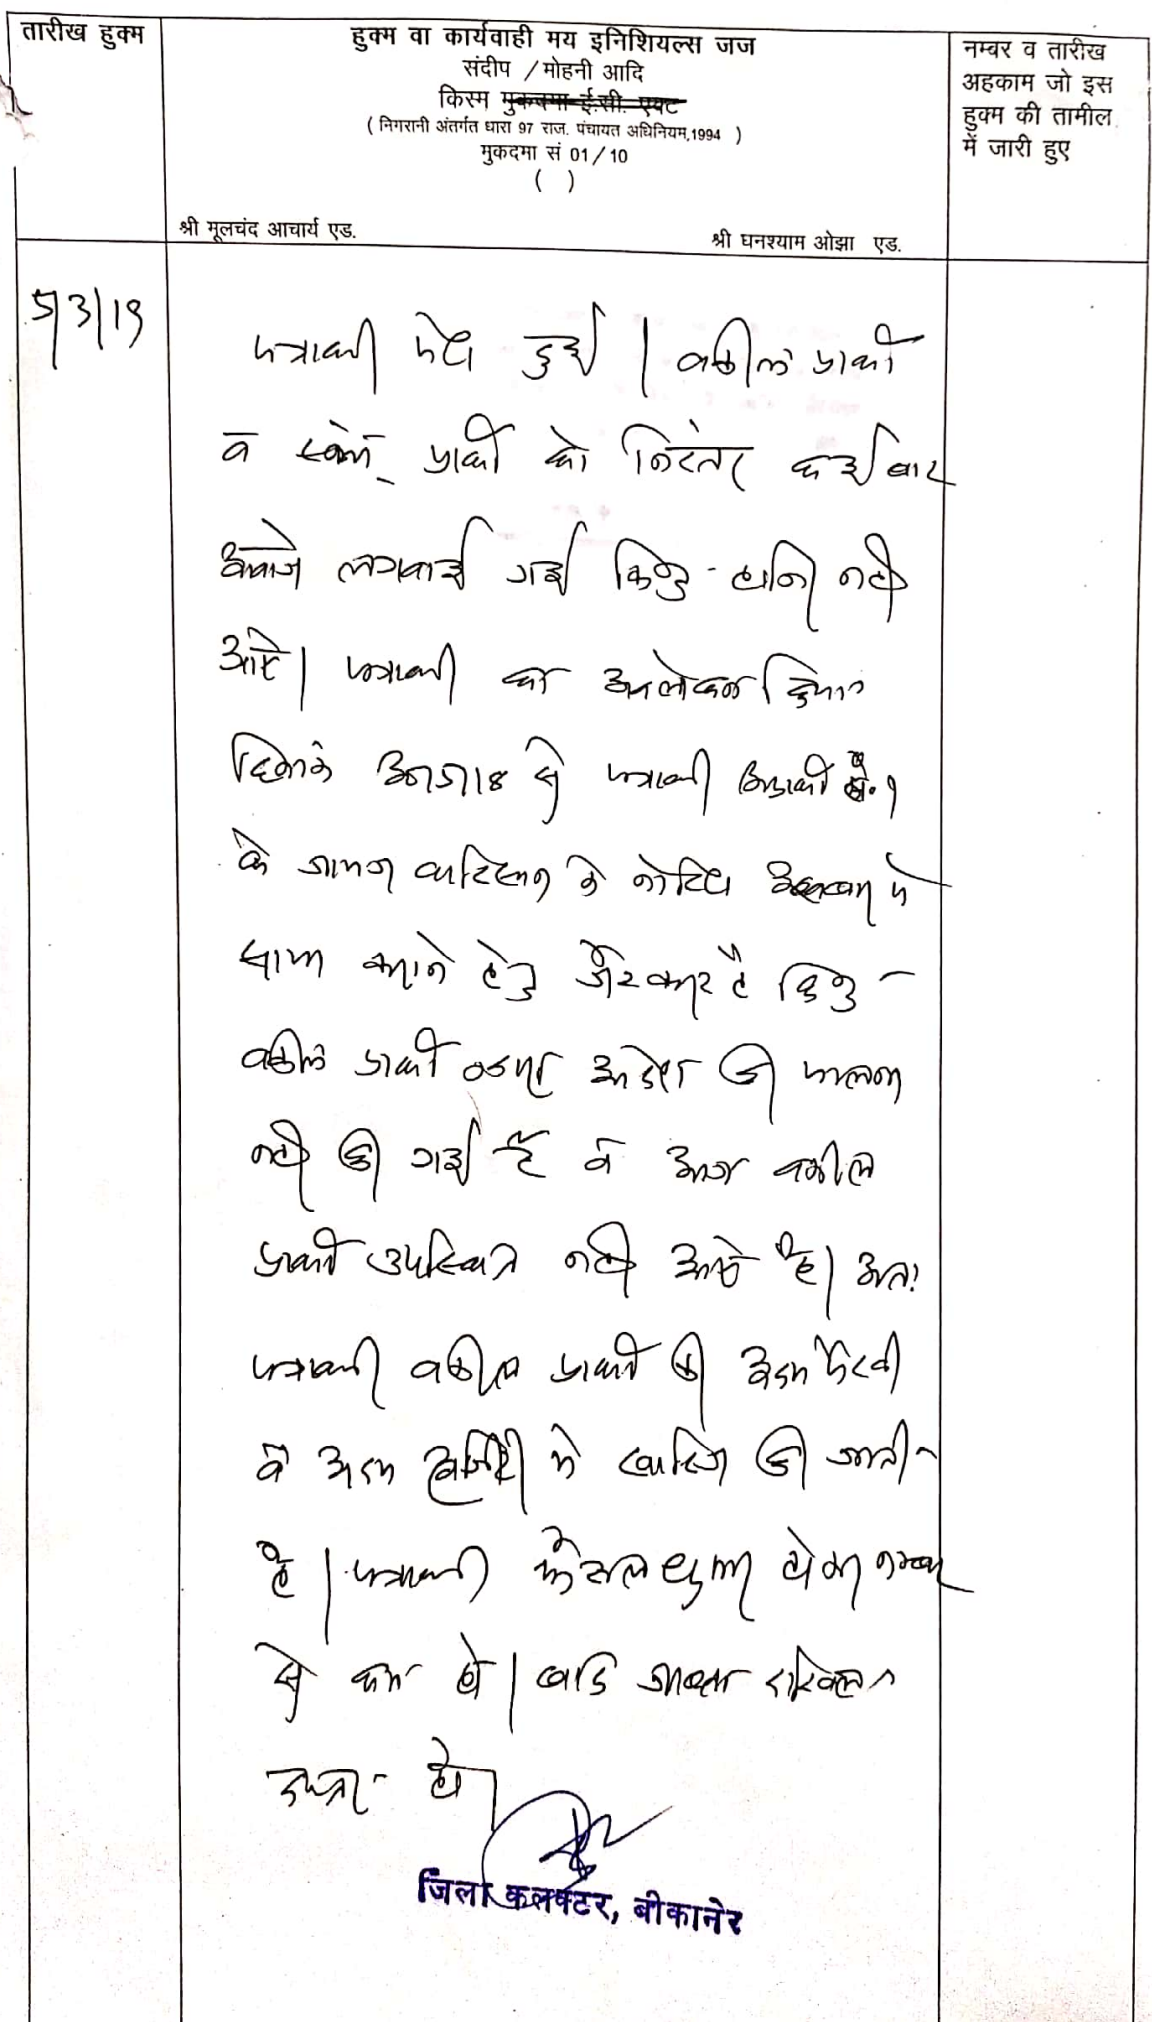 तारीख हुक्म
हुक्म वा कार्यवाही मय इनिशियल्स जज
संदीप / मोहनी आदि
किस्म मुकदमा ई.सी. एक्ट
( निगरानी अंतर्गत धारा 97 राज. पंचायत अधिनियम,1994 )
मुकदमा सं 01/10
( )
श्री मूलचंद आचार्य एड.
श्री घनश्याम ओझा एड.
नम्बर व तारीख
अहकाम जो इस
हुक्म की तामील
में जारी हुए
5/3/19
पत्रावली पेश हुई । वकील प्रार्थी
व स्वयं प्रार्थी को निरंतर कई बार
आवाजे लगवाई गई किन्तु हाजिर नही
आये । पत्रावली का अवलोकन किया
जिसके अनुसार से पत्रावली अप्रार्थी सं. 1
के वारिसान के नोटिस में
कराने हेतु है किन्तु
वकील प्रार्थी द्वारा आदेश की पालना
नही की गई है व आज वकील
प्रार्थी उपस्थित नही आये है। अतः
पत्रावली वकील प्रार्थी की अदम पैरवी
व अदम हाजिरी मे खारिज की जाती
है । पत्रावली फैसल शुमार होकर नम्बर
से कम हो । बाद दाखिल
दफ्तर हो ।
जिला कलक्टर, बीकानेर